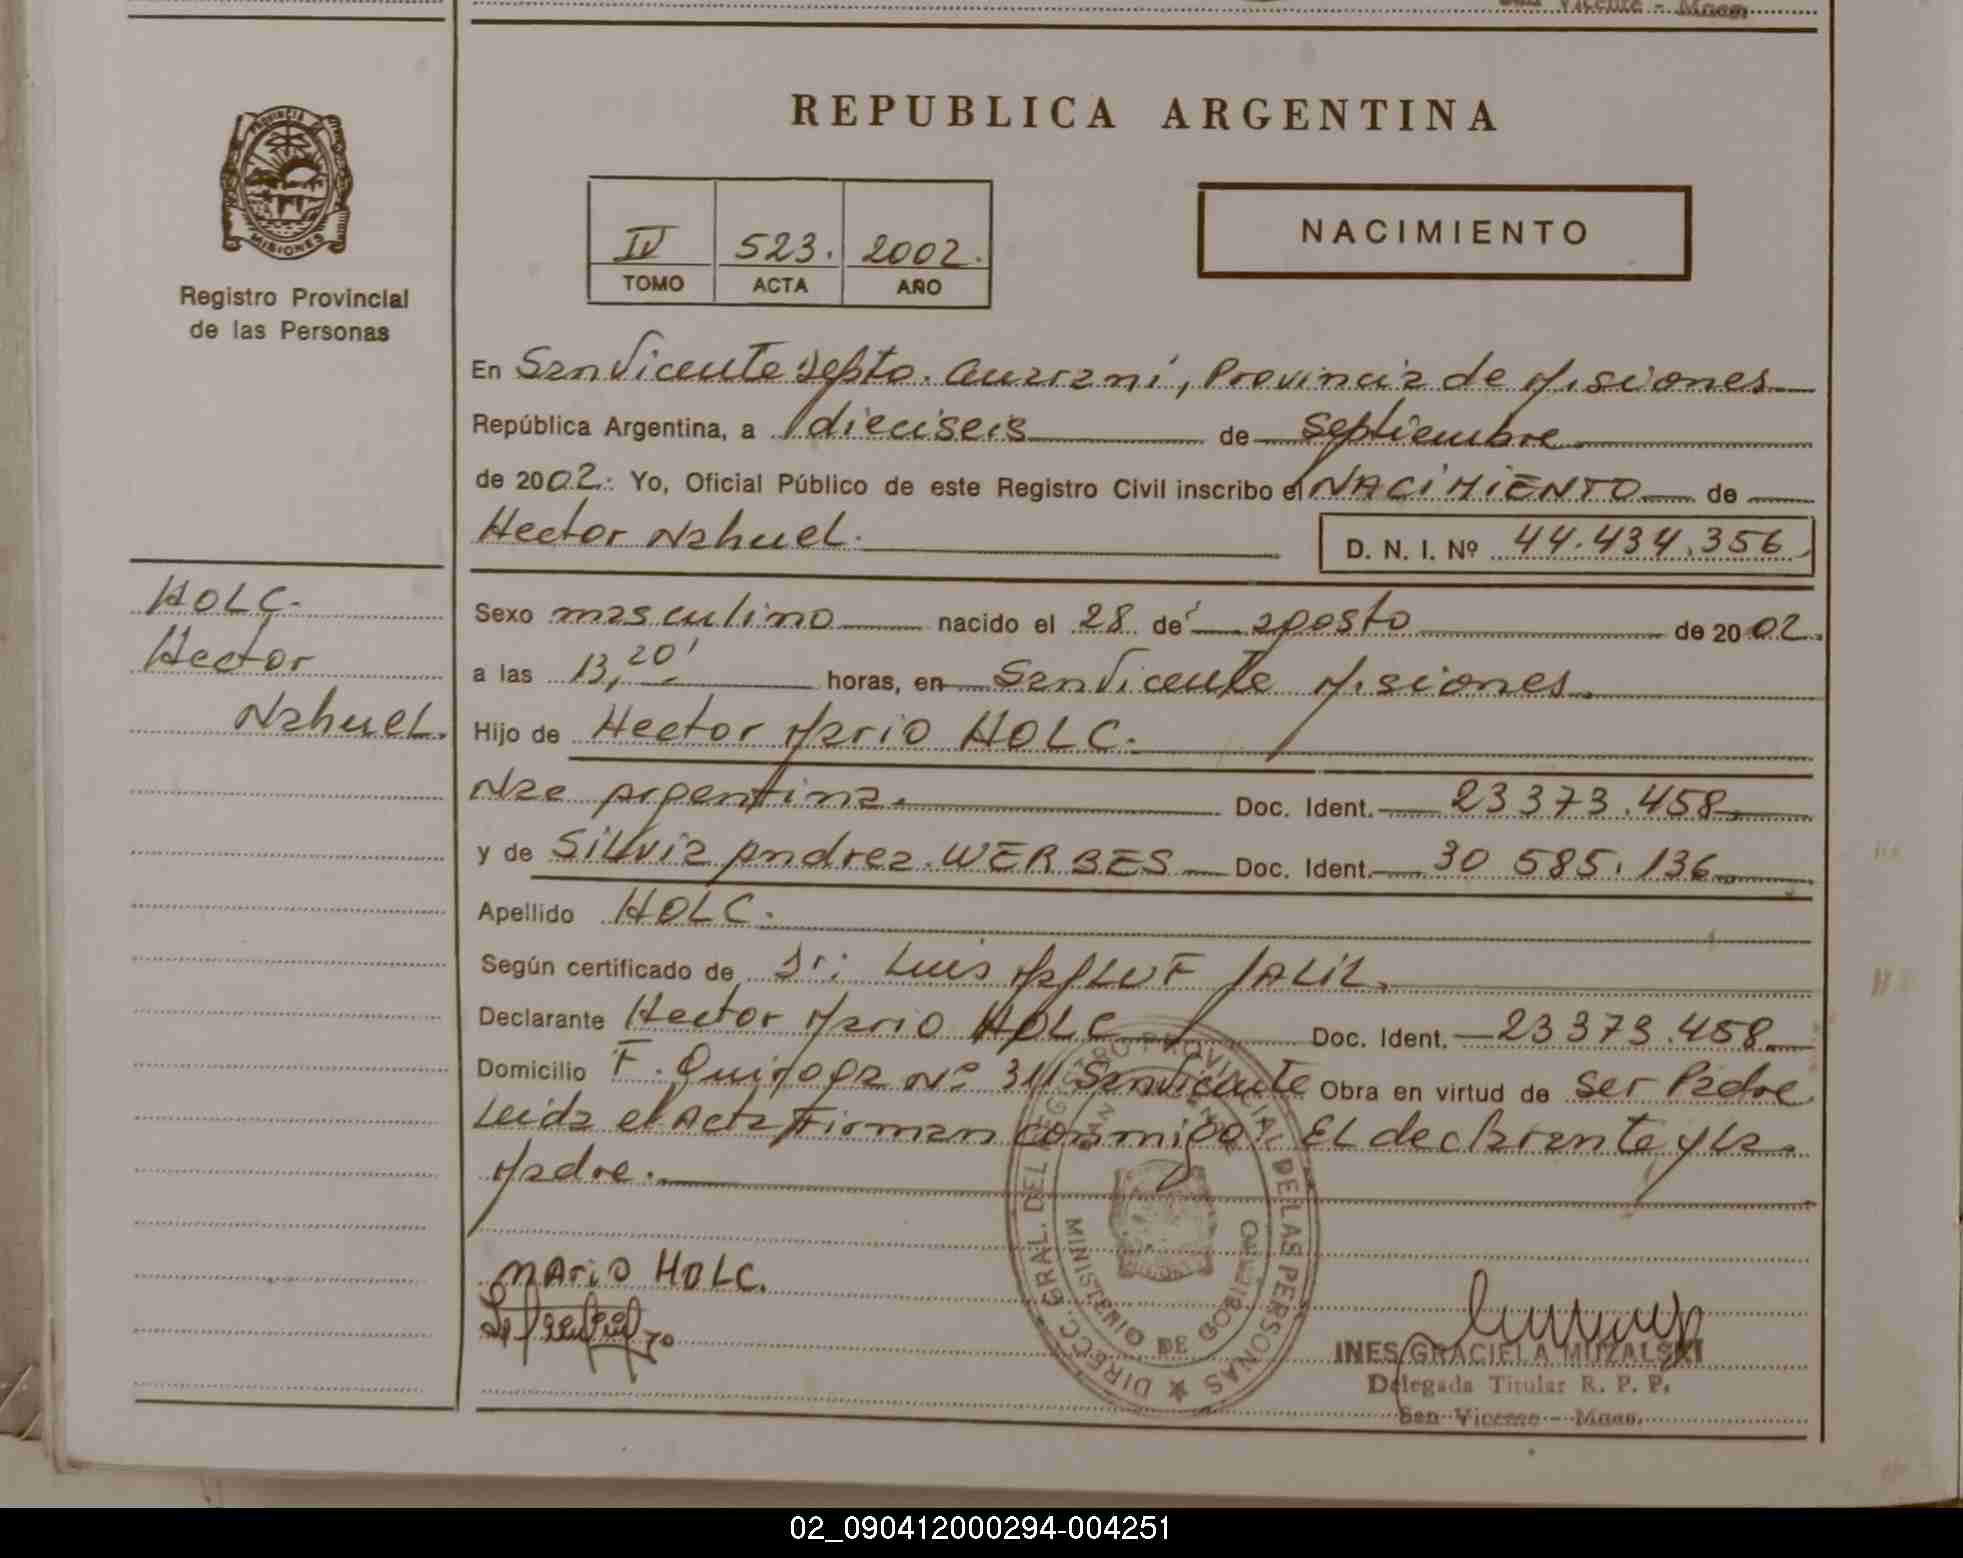 San Vicente - Mnes.
REPUBLICA ARGENTINA
PROVINCIA DE
MISIONES
Registro Provincial
de las Personas
IV 523. 2002.
TOMO ACTA AÑO
NACIMIENTO
En San Vicente Depto. Guarani, Provincia de Misiones
República Argentina, a dieciseis de septiembre
de 2002.: Yo, Oficial Público de este Registro Civil inscribo el NACIMIENTO de
Hector Nahuel. D. N. I. Nº 44.434.356
HOLC.
Hector
Nahuel.
Sexo masculino nacido el 28 de agosto de 2002.
a las 13,20' horas, en San Vicente Misiones.
Hijo de Hector Mario HOLC.
Nac Argentina. Doc. Ident. 23 373.458
y de Silvia Andrea WERBES Doc. Ident. 30 585.136
Apellido HOLC.
Según certificado de Dr: Luis MaLUF JALIL.
Declarante Hector Mario HOLC Doc. Ident. 23 373.458
Domicilio F. Quiroga Nº 311 San Vicente Obra en virtud de ser Padre
Leida el Acta Firman conmigo. EL declarante y la
Madre.
MARIO HOLC.
DIRECC. GRAL. DEL REGISTRO PROVINCIAL DE LAS PERSONAS
MINISTERIO DE GOBIERNO
INES GRACIELA MUZALSKI
Delegada Titular R. P. P.
San Vicente - Mnes.
02_090412000294-004251